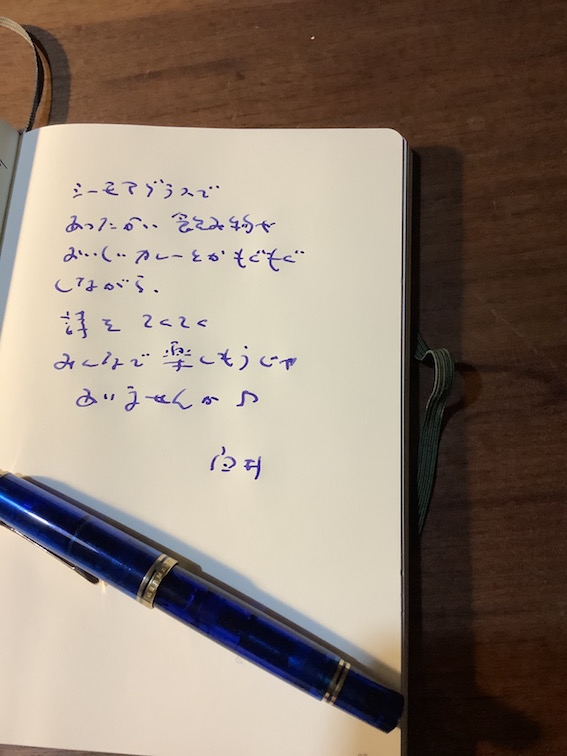 シーモアグラスで
あったかい飲み物や
おいしいカレーとかもぐもぐ
しながら、
詩をてくてく
みんなで楽しもうじゃ
あいませんか♪